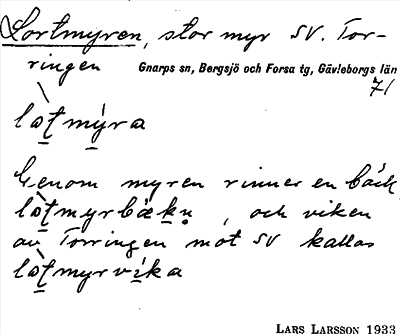 Lortmyren, stor myr SV. Tor-
ringen Gnarps sn, Bergsjö och Forsa tg, Gävleborgs län
71
lòt mýra
Genom myren rinner en bäck,
lòtmyrbækn, och viken
av Torringen mot SV kallas
lòtmyrvika
LARS LARSSON 1933